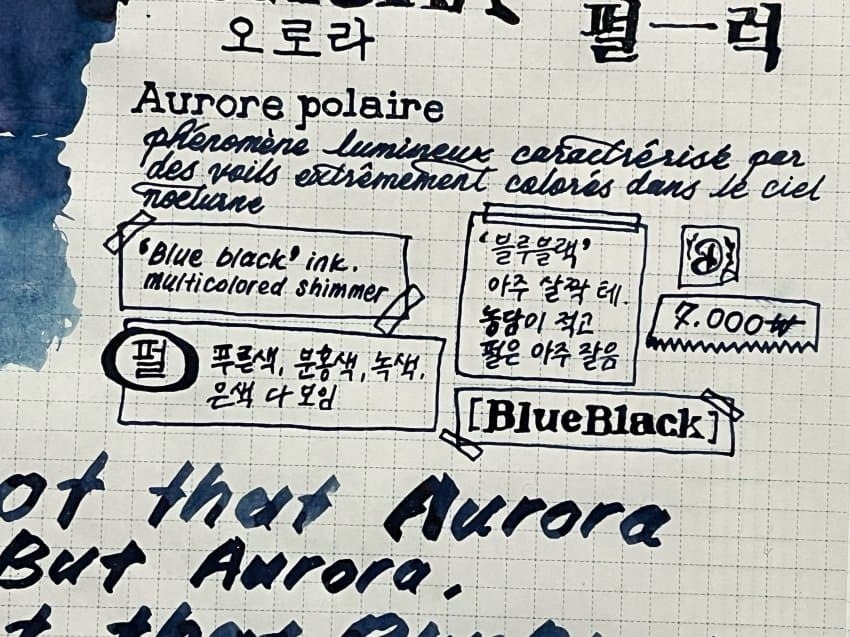 오로라
펄一러
Aurore polaire
phénomène lumineux caractérisé par
des voils extrêmement colorés dans le ciel
nocturne
'Blue black' ink.
multicolored shimmer
'블루블랙'
아주 살짝 테.
농담이 적고
펄은 아주 잘음
7.000₩
펄
푸른색, 분홍색, 녹색.
은색 다 모임
[BlueBlack]
ot that Aurora
But Aurora.